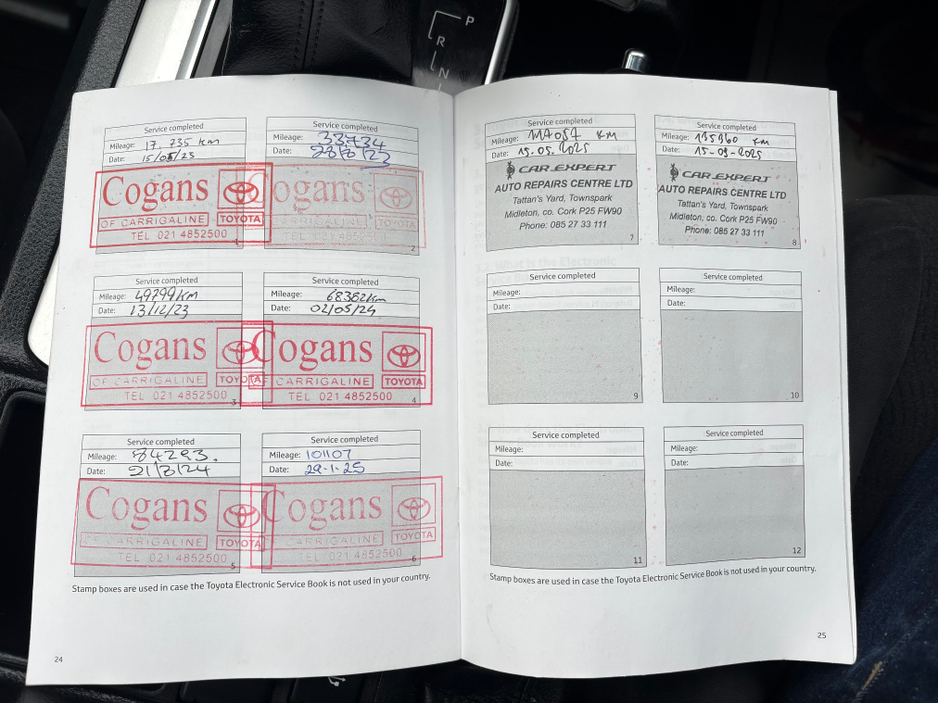 P
R
N
Service completed
Mileage: 17.735 km
Date: 15/05/23
Cogans
OF CARRIGALINE TOYOTA
TEL 021 4852500
1
Service completed
Mileage: 33734
Date: 28/8/23
Cogans
OF CARRIGALINE TOYOTA
TEL 021 4852500
2
Service completed
Mileage: 49299KM
Date: 13/12/23
Cogans
OF CARRIGALINE TOYOTA
TEL 021 4852500
3
Service completed
Mileage: 68382km
Date: 02/05/24
Cogans
OF CARRIGALINE TOYOTA
TEL 021 4852500
4
Service completed
Mileage: 84293.
Date: 21/8/24
Cogans
OF CARRIGALINE TOYOTA
TEL 021 4852500
5
Service completed
Mileage: 101107
Date: 29-1-25
Cogans
OF CARRIGALINE TOYOTA
TEL 021 4852500
6
Stamp boxes are used in case the Toyota Electronic Service Book is not used in your country.
24
Service completed
Mileage: KM
Date: 15.05.2025
CAR EXPERT
AUTO REPAIRS CENTRE LTD
Tattan's Yard, Townspark
Midleton, co. Cork P25 FW90
Phone: 085 27 33 111
7
Service completed
Mileage: 135360 Km
Date: 15-09-2025
CAR EXPERT
AUTO REPAIRS CENTRE LTD
Tattan's Yard, Townspark
Midleton, co. Cork P25 FW90
Phone: 085 27 33 111
8
Service completed
Mileage:
Date:
9
Service completed
Mileage:
Date:
10
Service completed
Mileage:
Date:
11
Service completed
Mileage:
Date:
12
Stamp boxes are used in case the Toyota Electronic Service Book is not used in your country.
25